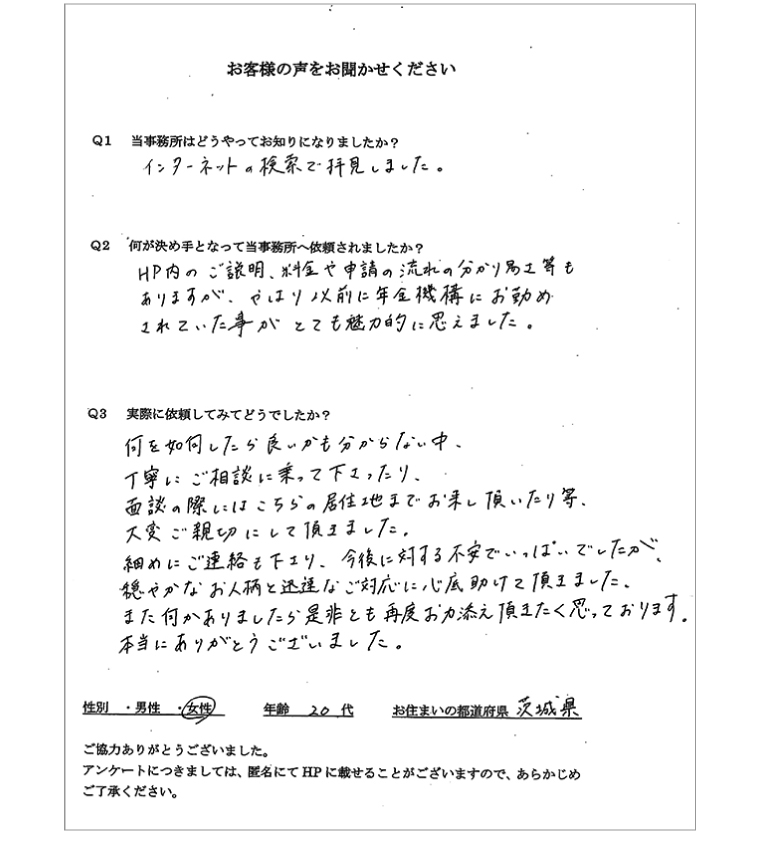 お客様の声をお聞かせください
Q1 当事務所はどうやってお知りになりましたか？
インターネットの検索で拝見しました。
Q2 何が決め手となって当事務所へ依頼されましたか？
HP内のご説明、料金や申請の流れの分かり易さ等も
ありますが、やはり以前に年金機構にお勤め
されていた事がとても魅力的に思えました。
Q3 実際に依頼してみてどうでしたか？
何を如何したら良いかも分からない中、
丁寧にご相談に乗って下さったり、
面談の際にはこちらの居住地までお来し頂いたり等、
大変ご親切にして頂きました。
細めにご連絡も下さり、今後に対する不安でいっぱいでしたが、
穏やかなお人柄と迅速なご対応に心底助けて頂きました、
また何かありましたら是非とも再度お力添え頂きたく思っております。
本当にありがとうございました。
性別 ・男性 ・女性 年齢 20 代 お住まいの都道府県 茨城県
ご協力ありがとうございました。
アンケートにつきましては、匿名にてHPに載せることがございますので、あらかじめ
ご了承ください。